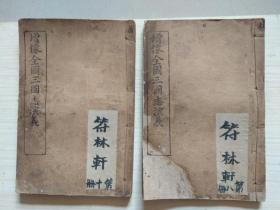 增像全圖三國志演義
符林軒
第十冊
增像全圖三國志演義
符林軒
第八冊